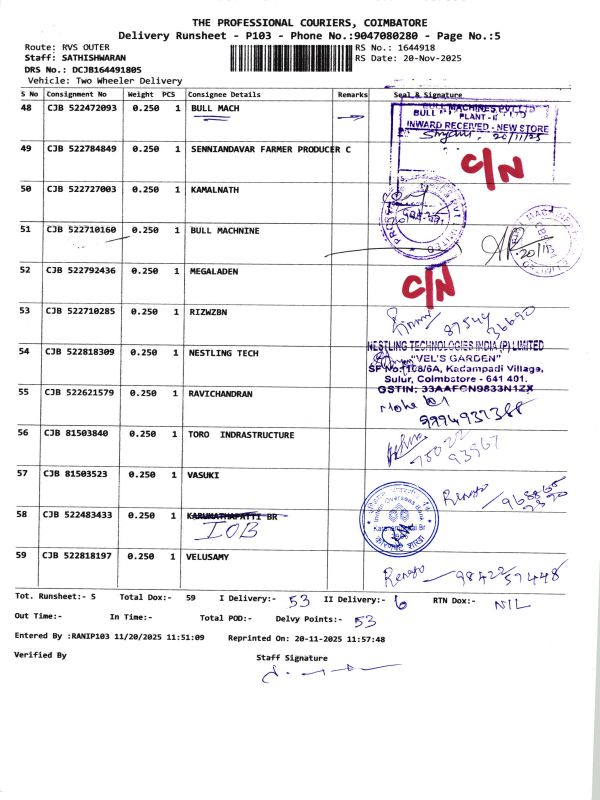 THE PROFESSIONAL COURIERS, COIMBATORE
Delivery Runsheet - P103 - Phone No.:9047080280 - Page No.:5
Route: RVS OUTER
RS No.: 1644918
Staff: SATHISHWARAN
RS Date: 20-Nov-2025
DRS No.: DCJB164491805
Vehicle: Two Wheeler Delivery
S No Consignment No Weight PCS Consignee Details Remarks Seal & Signature
48 CJB 522472093 0.250 1 BULL MACH
BULL MACHINES PVT LTD
PLANT - II
INWARD RECEIVED - NEW STORE
20/11/25
49 CJB 522784849 0.250 1 SENNIANDAVAR FARMER PRODUCER C
C/N
50 CJB 522727003 0.250 1 KAMALNATH
51 CJB 522710160 0.250 1 BULL MACHNINE
52 CJB 522792436 0.250 1 MEGALADEN
C/N
53 CJB 522710285 0.250 1 RIZWZBN
87544 36690
54 CJB 522818309 0.250 1 NESTLING TECH
NESTLING TECHNOLOGIES INDIA (P) LIMITED
"VEL'S GARDEN"
SF No: 108/6A, Kadampadi Village,
Sulur, Coimbatore - 641 401.
GSTIN: 33AAFCN9833N1ZX
55 CJB 522621579 0.250 1 RAVICHANDRAN
9994937388
56 CJB 81503840 0.250 1 TORO INDRASTRUCTURE
75022 93967
57 CJB 81503523 0.250 1 VASUKI
58 CJB 522483433 0.250 1 KARUMATHAPATTI BR
IOB
Indian Overseas Bank
59 CJB 522818197 0.250 1 VELUSAMY
98422 57448
Tot. Runsheet:- 5 Total Dox:- 59 I Delivery:- 53 II Delivery:- 6 RTN Dox:- NIL
Out Time:- In Time:- Total POD:- Delvy Points:- 53
Entered By :RANIP103 11/20/2025 11:51:09 Reprinted On: 20-11-2025 11:57:48
Verified By Staff Signature